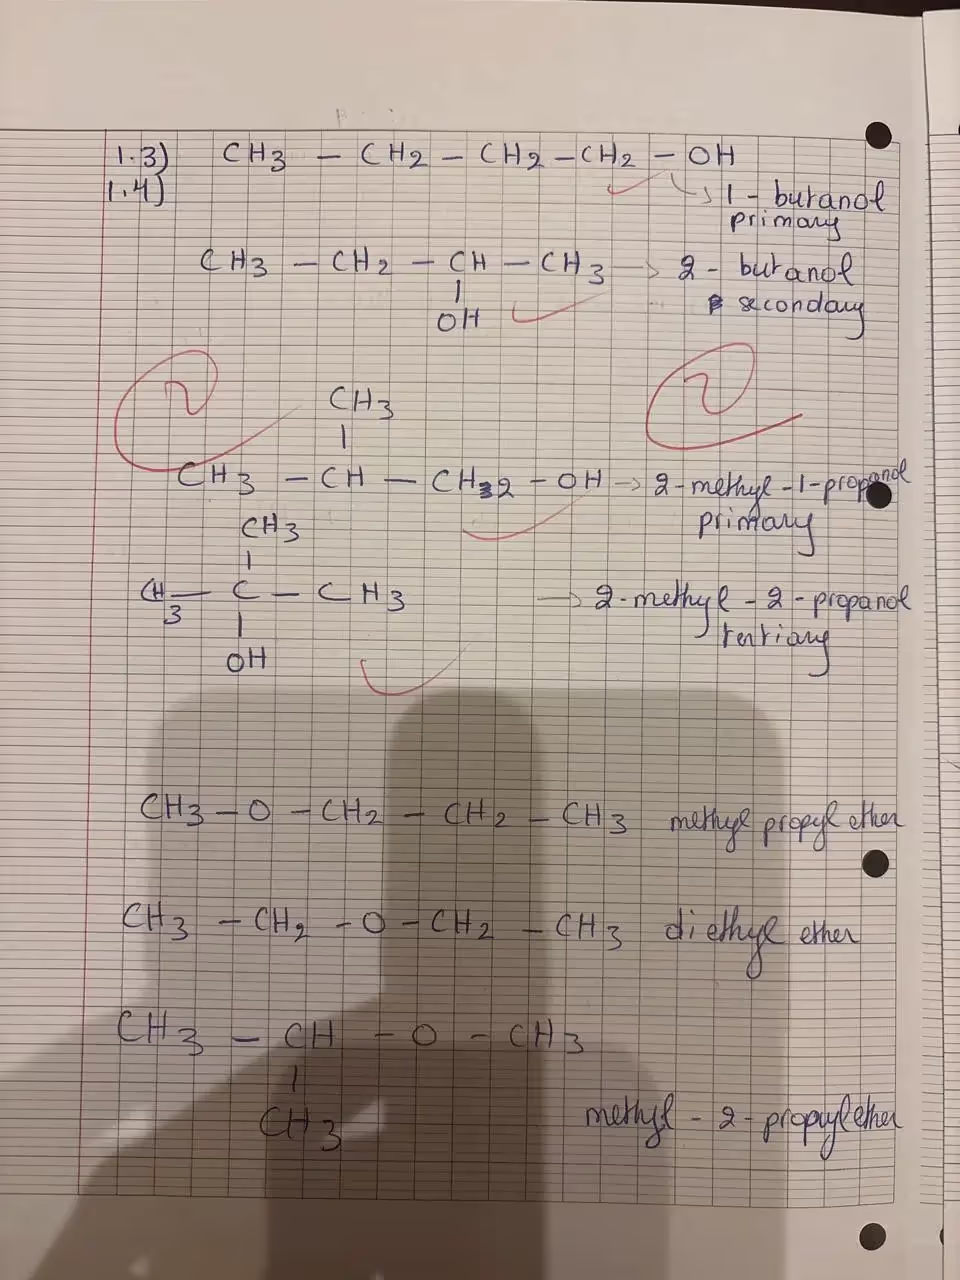 1.3) CH3 - CH2 - CH2 - CH2 - OH
1.4) → 1-butanol
primary
CH3 - CH2 - CH - CH3 → 2-butanol
|
OH secondary
2 2
CH3
|
CH3 - CH - CH2 - OH → 2-methyl-1-propanol
primary
CH3
|
CH3 - C - CH3 → 2-methyl-2-propanol
| tertiary
OH
CH3 - O - CH2 - CH2 - CH3 methyl propyl ether
CH3 - CH2 - O - CH2 - CH3 diethyl ether
CH3 - CH - O - CH3
|
CH3 methyl-2-propyl ether